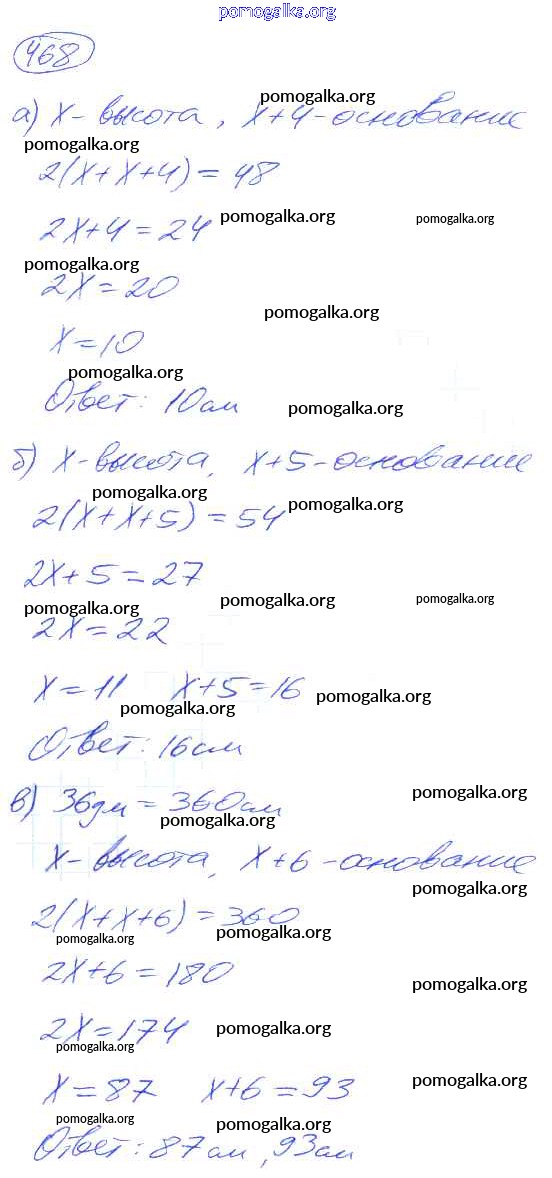 pomogalka.org
468
pomogalka.org
а) x - высота, x+4 - основание
pomogalka.org
2(x+x+4) = 48
pomogalka.org pomogalka.org
2x+4 = 24
pomogalka.org
2x = 20
pomogalka.org
x = 10
pomogalka.org
Ответ: 10см
pomogalka.org
б) x - высота, x+5 - основание
pomogalka.org pomogalka.org
2(x+x+5) = 54
2x+5 = 27
pomogalka.org pomogalka.org pomogalka.org
2x = 22
x = 11 x+5 = 16
pomogalka.org pomogalka.org
Ответ: 16см
в) 36дм = 360см
pomogalka.org
pomogalka.org
x - высота, x+6 - основание
pomogalka.org
2(x+x+6) = 360
pomogalka.org pomogalka.org
2x+6 = 180
pomogalka.org
2x = 174
pomogalka.org
pomogalka.org
x = 87 x+6 = 93
pomogalka.org
pomogalka.org pomogalka.org
Ответ: 87см, 93см